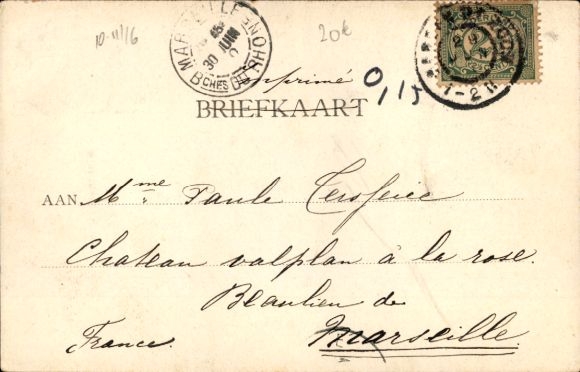 10-11/16
20€
MARSEILLE
30 JUIN
BCHES DU RHONE
1-2 N
Imprimé
0,15
BRIEFKAART
AAN Mme Paule
Chateau valplan à la rose.
Beaulieu de
France. Marseille.